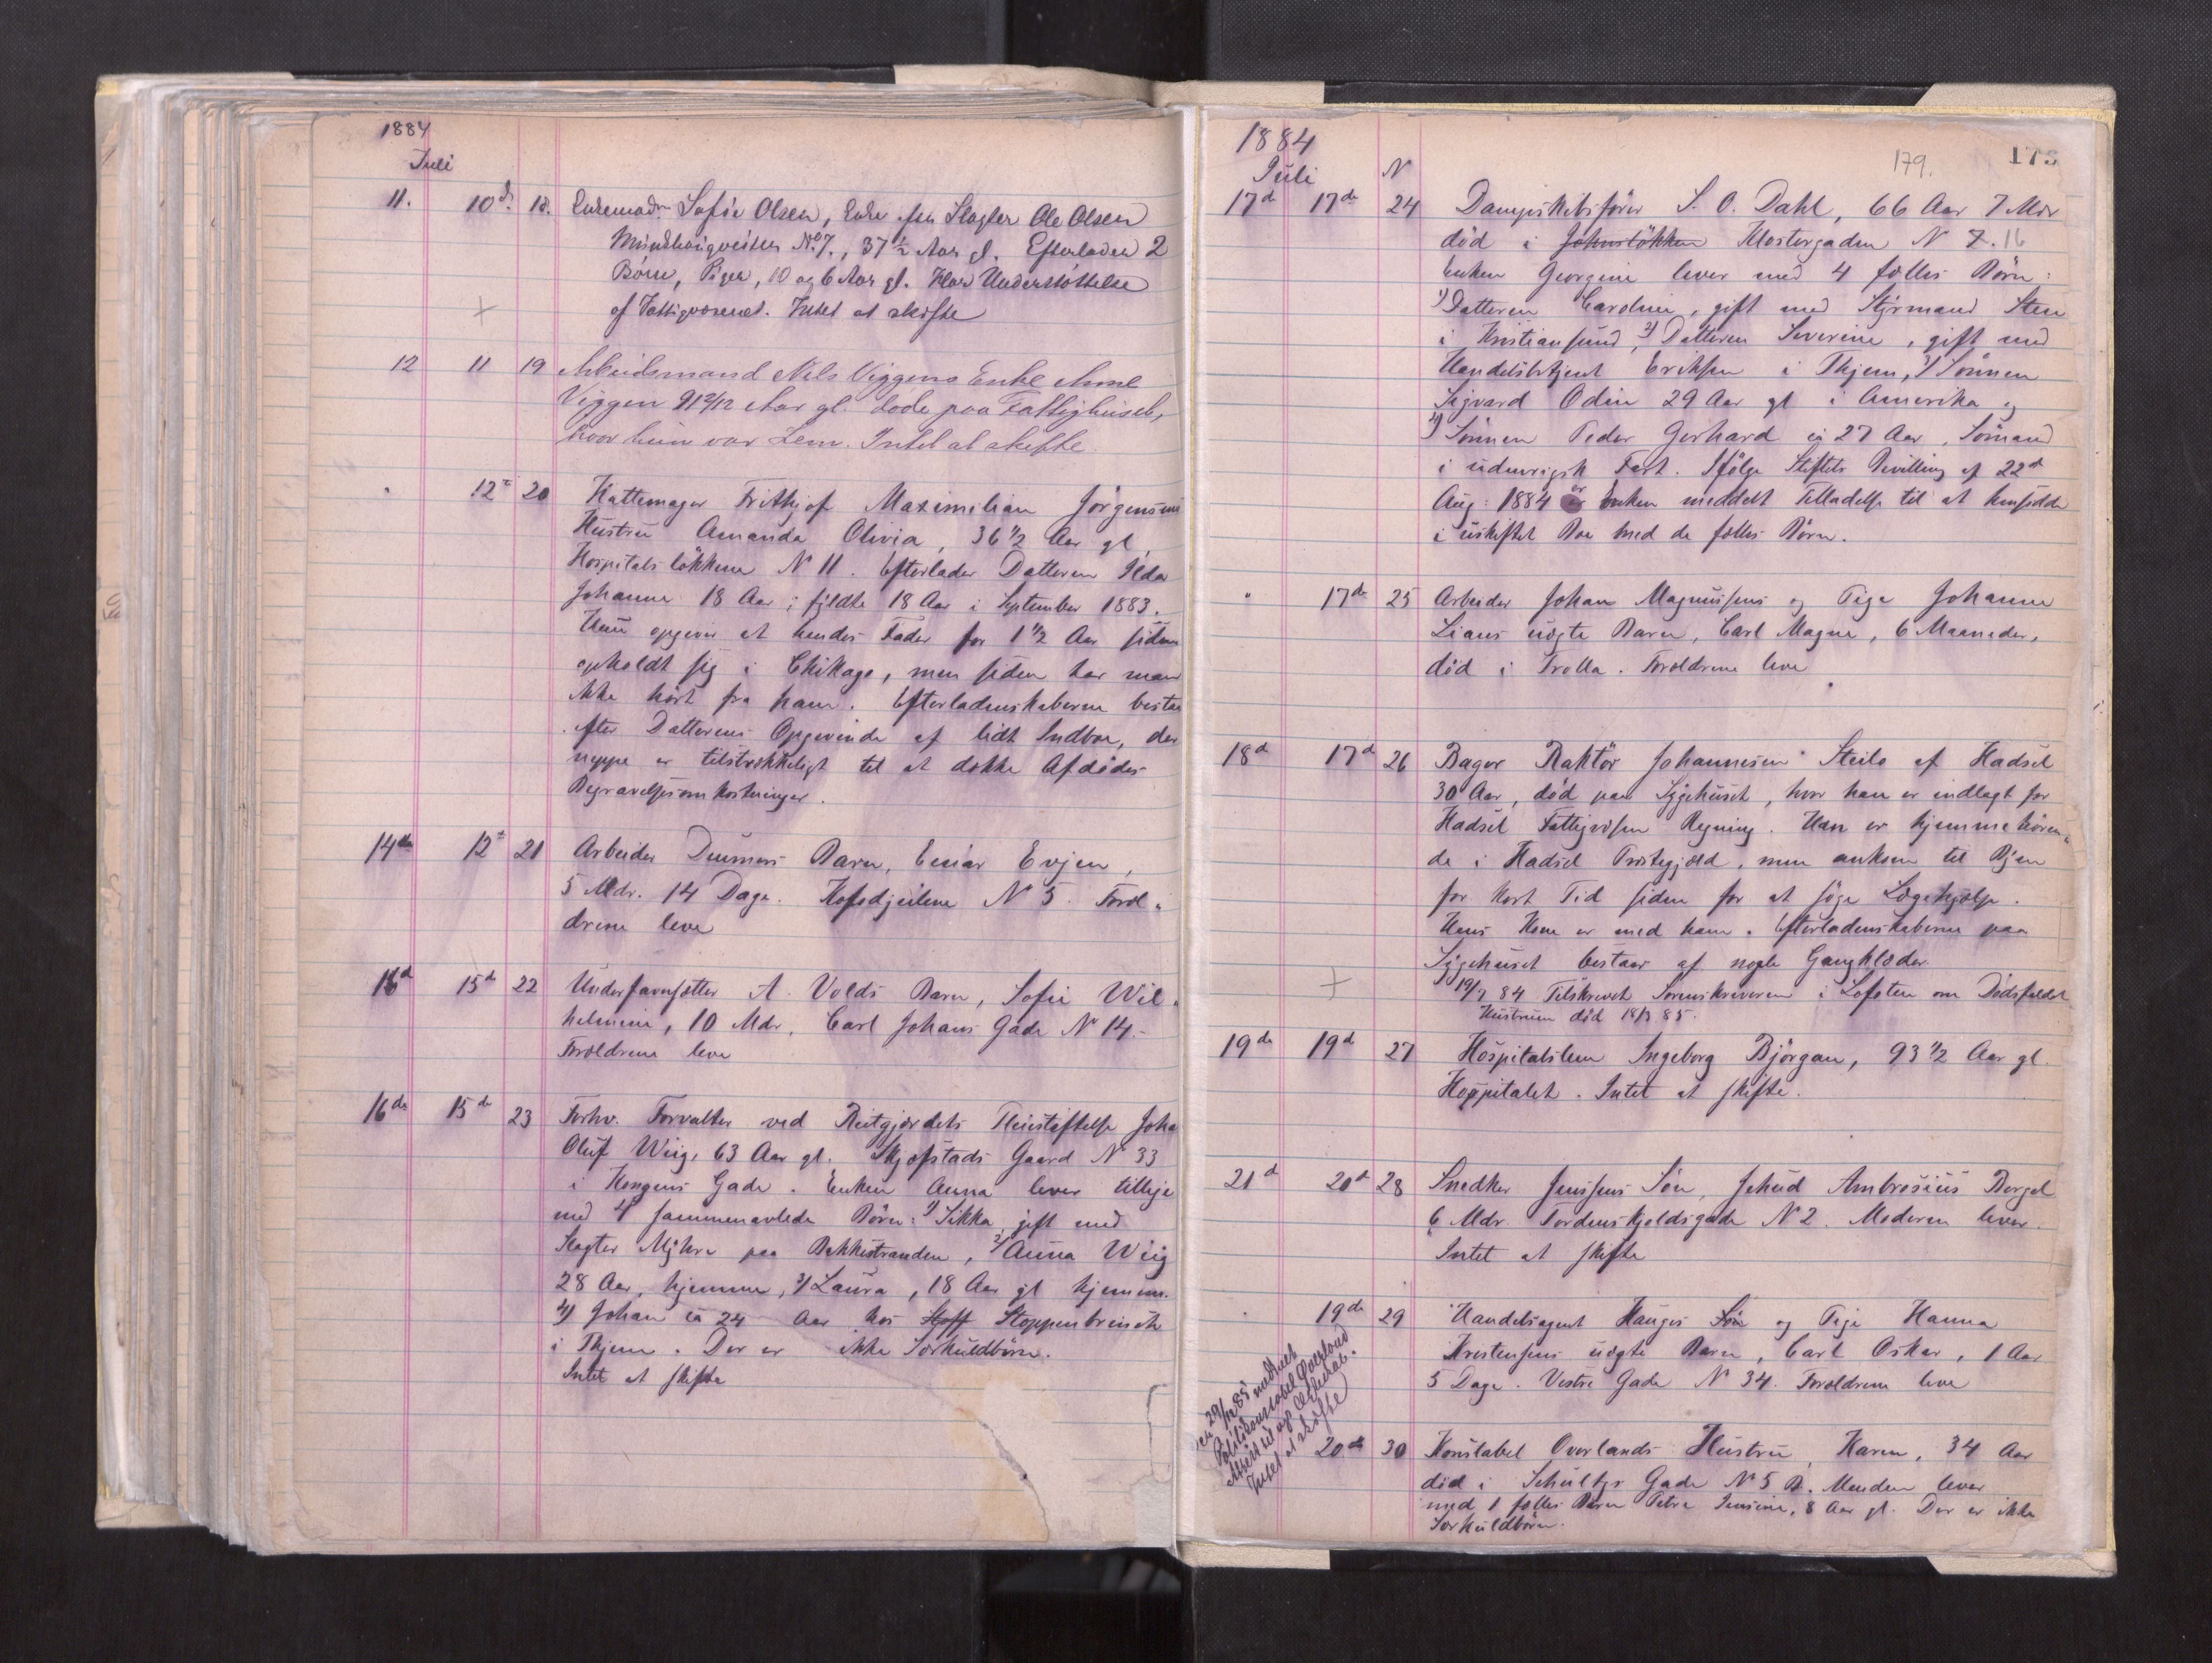 1884
Juli
11. 10d. 18. Enkemadm Sofie Olsen, Enke efter Slagter Ole Olsen
No 7., 37 1/2 Aar gl. Efterlader 2
Børn, Piger, 10 og 6 Aar gl. Har Understøttelse
af Fattigvæsenet. Intet at skifte
12 11 19 Arbeidsmand Nils Viggens Enke Anne
Viggen 91 9/12 Aar gl. døde paa Fattighuset,
hvor hun var Lem. Intet at skifte.
" 12te 20 Hattemager Frithjof Maximilian Jørgensens
Hustru Amanda Olivia, 36 1/2 Aar gl,
Hospitalsløkkene N 11. Efterlader Datteren Ilda
Johanne 18 Aar; fyldte 18 Aar i September 1883.
Hun opgiver at hendes Fader for 1 1/2 Aar siden
opholdt sig i Chikago, men siden har man
ikke hørt fra ham. Efterladenskaberne bestaar
efter Datterens Opgivende af lidt Indboe, der
neppe er tilstrækkeligt til at dække Afdødes
Begravelsesomkostninger.
14de 12te 21 Arbeider Barn, Einar Evjen,
5 Mdr. 14 Dage. N 5. Foræl-
drene leve
16d 15de 22 Underfavnsætter A. Volds Barn, Sofie Wil-
helmine, 10 Mdr, Carl Johans Gade N 14.
Forældrene leve
16de 15de 23 Forhv. Forvalter ved Reitgjærdets Pleiestiftelse Joha
Oluf Wiig, 63 Aar gl. Skjefstads Gaard N 33
i Kongens Gade. Enken Anna lever tillige
med 4 sammenavlede Børn: 1) Sikka, gift med
Slagter Myhre paa Bakkestranden, 2) Anna Wiig
28 Aar, hjemme, 3) Laura, 18 Aar gl hjemme.
4) Johan ca 24 Aar hos Stoff Stoppenbrinck
i Thjem. Der er ikke Særkuldbørn.
Intet at skifte
1884
Juli N
179. 175
17d 17de 24 Dampskibsfører S. O. Dahl, 66 Aar 7 Mdr
død i Johansløkken Klostergaden N 7. 16
Enken Georgine lever med 4 fælles Børn:
1) Datteren Caroline, gift med Styrmand Sten
i Kristiansund, 2) Datteren Severine, gift med
Handelsbetjent Eriksen i Thjem, 3) Sønnen
Sigvard Odin 29 Aar gl i Amerika og
4) Sønnen Peder Gerhard ca 27 Aar, Sømand
i udenrigsk Fart. Ifølge Stiftets Bevilling af 22d
Aug: 1884 er Enken meddelt Tilladelse til at hensidde
i uskiftet Boe med de fælles Børn.
" 17de 25 Arbeider Johan Magnussens og Pige Johanne
Lians uægte Barn, Carl Magne, 6 Maaneder,
død i Trolla. Forældrene leve
18d 17d 26 Bager Raktør Johannesen Steilo af Hadsel
30 Aar, død paa Sygehuset, hvor han er indlagt for
Hadsel Fattigvæsens Regning. Han er hjemmehøren-
de i Hadsel Præstegjæld, men ankom til Byen
for kort Tid siden for at søge Lægehjælp.
Hans Kone er med ham. Efterladenskaberne paa
Sygehuset bestaar af nogle Gangklæder.
19/7 84 Tilskrevet Sorenskriveren i Lofoten om Dødsfaldet
Hustruen død 18/3 85.
19de 19d 27 Hospitalslem Ingeborg Bjørgan, 93 1/2 Aar gl.
Hospitalet. Intet at skifte.
21d 20d 28 Snedker Jensens Søn, Ambrosius Borgel
6 Mdr. Tordenskjoldsgade N 2. Moderen lever.
Intet at skifte
" 19de 29 Handelsagent Hauges Søn og Pige Hanna
Kristensens uægte Barn, Carl Oskar, 1 Aar
5 Dage. Vestre Gade N 34. Forældrene leve
29/12 85 meddelt
Politikonstabel Overland
Attest til
Intet at skifte
20de 30 Konstabel Overlands Hustru, Karen, 34 Aar
død i Schultzs Gade N 5 B. Manden lever
med 1 fælles Barn Petra Jensine, 8 Aar gl. Der er ikke
Særkuldbørn.